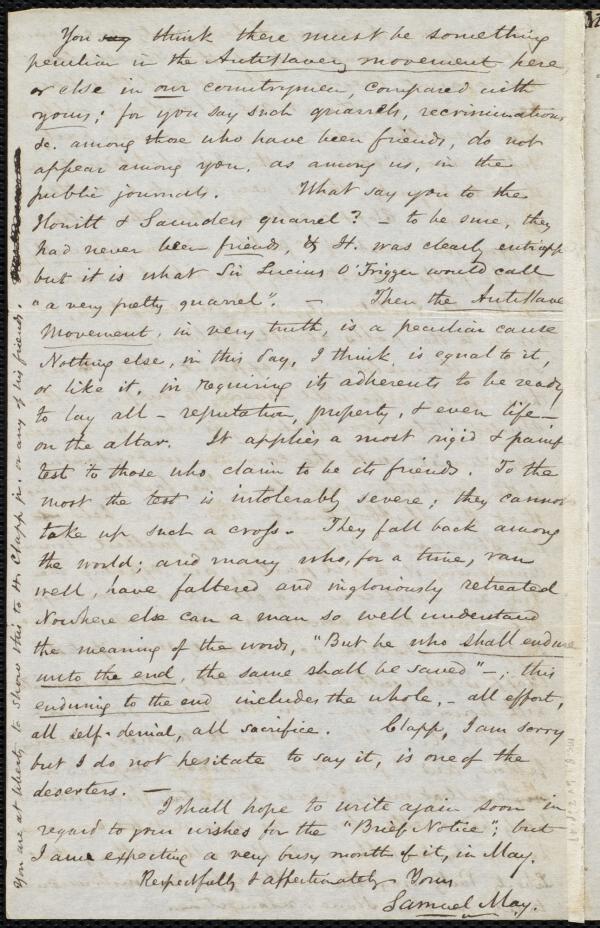 You say think there must be something
peculiar in the AntiSlavery movement here
or else in our countrymen, compared with
yours; for you say such quarrels, recriminations
&c. among those who have been friends, do not
appear among you, as among us, in the
public journals. What say you to the
Howitt & Saunders quarrel? – to be sure, they
had never been friends, & H. was clearly entrapp
but it is what Sir Lucius O'Trigger would call
"a very pretty quarrel". – Then the AntiSlave
Movement, in very truth, is a peculiar cause
Nothing else, in this day, I think, is equal to it,
or like it, in requiring its adherents to be ready
to lay all – reputation, property, & even life –
on the altar. It applies a most rigid & painf
test to those who claim to be its friends. To the
most the test is intolerably severe; they cannot
take up such a cross. They fall back among
the world; and many who, for a time, ran
well, have faltered and ingloriously retreated
Nowhere else can a man so well understand
the meaning of the words, "But he who shall endure
unto the end, the same shall be saved" –; this
enduring to the end includes the whole, – all effort,
all self-denial, all sacrifice. Clapp, I am sorry
but I do not hesitate to say it, is one of the
deserters. –
I shall hope to write again soon in
regard to your wishes for the "Brief Notice"; but
I am expecting a very busy month of it, in May.
Respectfully & affectionately Yours,
Samuel May.
You are at liberty to show this to H. Clapp jr. or any of his friends.